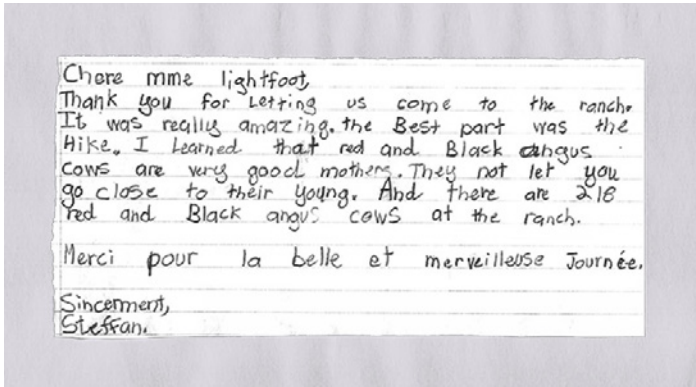 Chere mme lightfoot,
Thank you for Letting us come to the ranch.
It was really amazing. the Best part was the
Hike. I Learned that red and Black angus
cows are very good mothers. They not let you
go close to their young. And there are 218
red and Black angus cows at the ranch.
Merci pour la belle et merveilleuse Journée.
Sincerment,
Steffan.